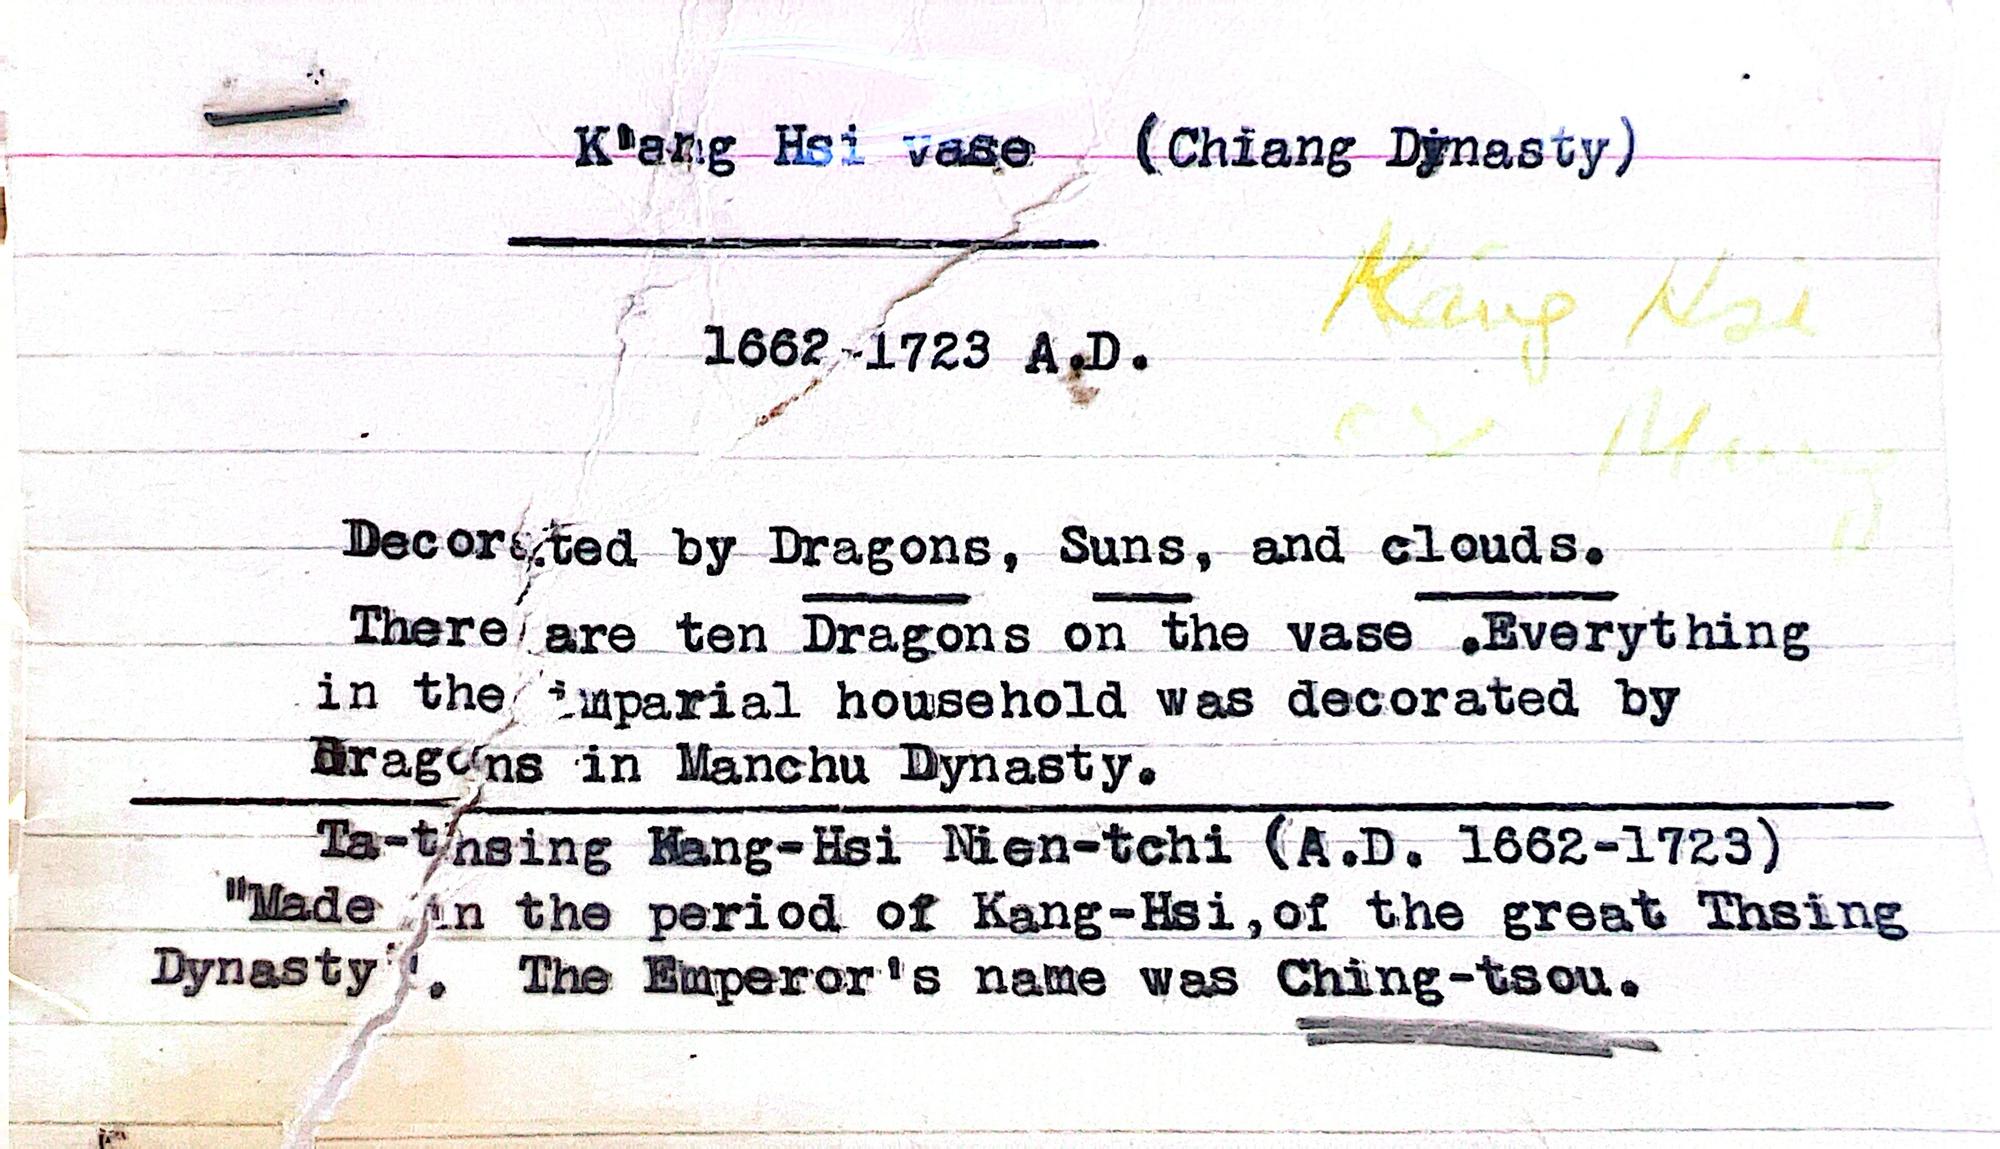 K'ang Hsi vase (Chiang Dynasty)
1662-1723 A.D.
Kang Hsi
Decorated by Dragons, Suns, and clouds.
There are ten Dragons on the vase .Everything
in the imparial household was decorated by
Dragons in Manchu Dynasty.
Ta-thsing Kang-Hsi Nien-tchi (A.D. 1662-1723)
"Made in the period of Kang-Hsi,of the great Thsing
Dynasty". The Emperor's name was Ching-tsou.